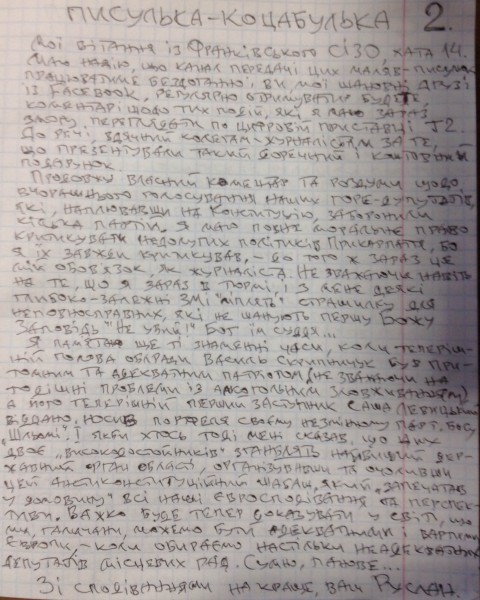 ПИСУЛЬКА-КОЦАБУЛЬКА 2.
Мої вітання із Франківського СІЗО, хата 14.
Маю надію, що канал передачі цих маляв-писульок
працюватиме бездоганно, і ви, мої шановні друзі
із Facebook, регулярно отримувати будете
коментарі щодо тих подій, які я маю зараз
змогу переглядати по цифровій приставці Т2.
До речі, вдячний колегам-журналістам за те,
що презентували такий доречний і коштовний
подарунок.
Продовжу власний коментар та роздуми щодо
вчорашнього голосування наших горе-депутатів,
які, наплювавши на Конституцію, заборонили
кілька партій. Я маю повне моральне право
критикувати недолугих політиків Прикарпаття, бо
я їх завжди критикував, - до того ж зараз це
мій обов'язок, як журналіста. Не зважаючи навіть
на те, що я зараз в тюрмі, і з мене деякі
глибоко-залежні ЗМІ "ліплять" страшилку для
неповносправних, які не шанують першу Божу
Заповідь "Не убий!" Бог їм суддя...
Я пам'ятаю ще ті знаменні часи, коли теперіш-
ній голова облради Василь Скрипничук був при-
томним та адекватним патріотом (не зважаючи на
тодішні проблеми із алкогольним зловживанням)
а його теперішній перший заступник Саша Левицький
віддано носив портфеля своєму незмінному партбосу
"Шльомі". І якби хтось тоді мені сказав, що цих
двоє "високодостойників" зганьблять найвищий дер-
жавний орган області, організувавши та очоливши
цей антиконституційний шабаш, який "запечатав
у домовину" всі наші євросподівання та перспек-
тиви. Важко буде тепер доказувати у світі, що
ми, галичани, можемо бути адекватними і вартими
Європи, - коли обираємо настільки неадекватних
депутатів місцевих рад. Сумно, панове...
Зі сподіваннями на краще, ваш Руслан.